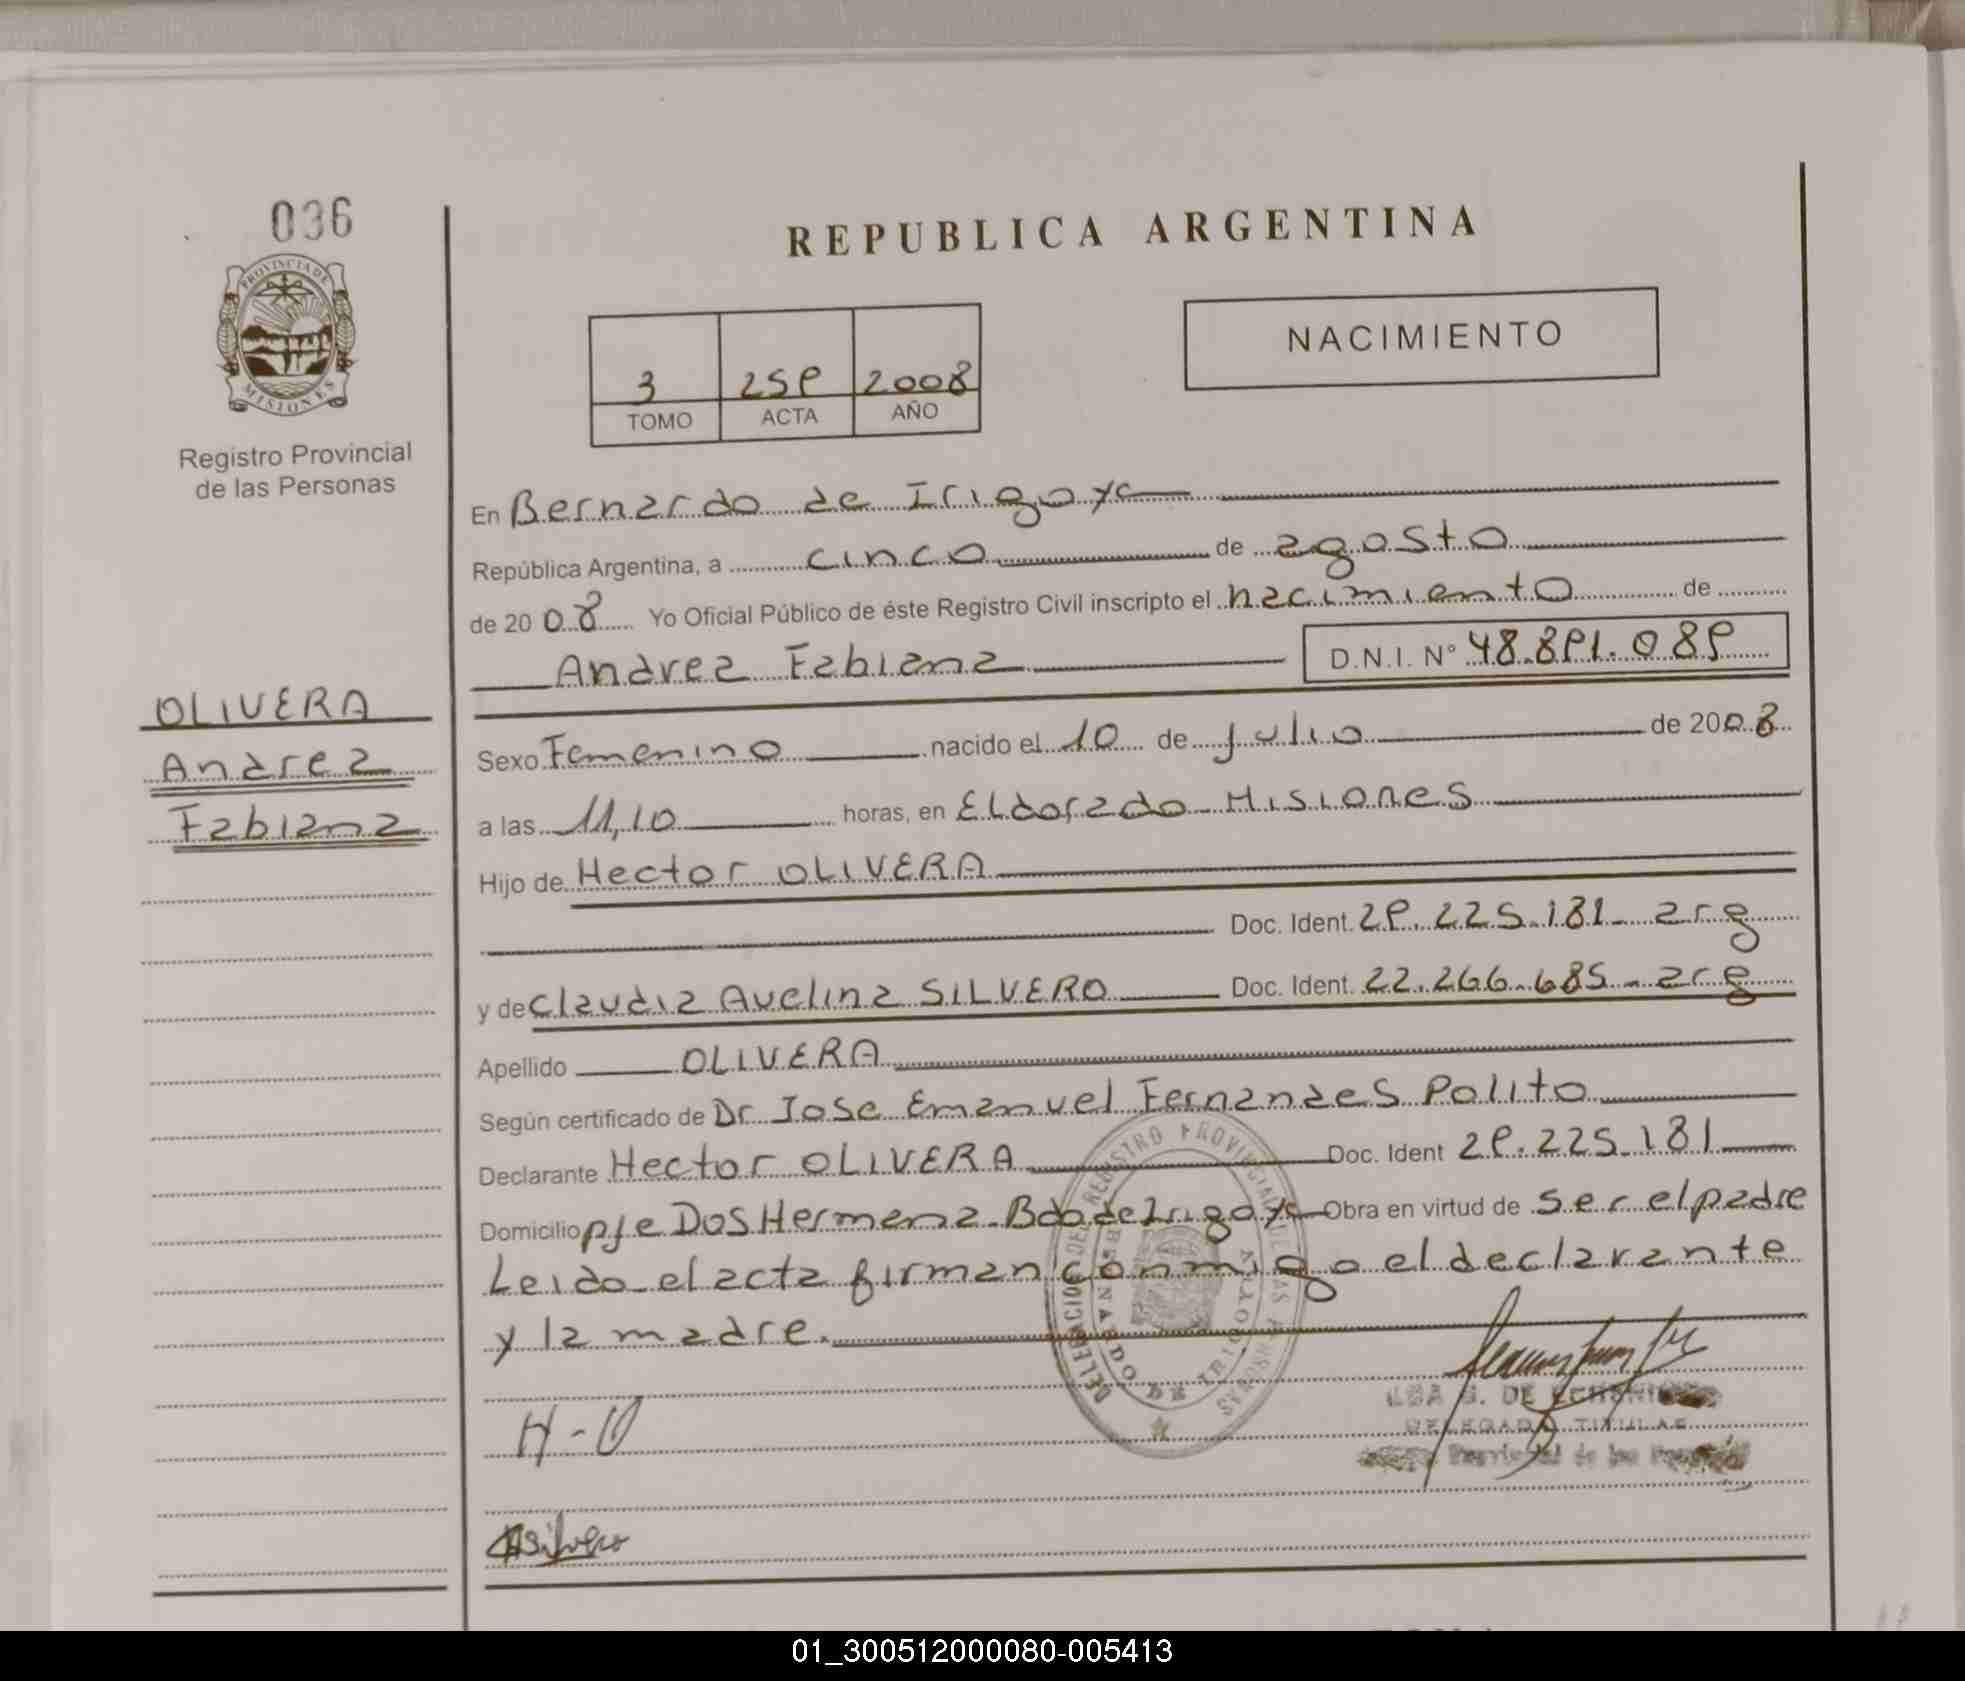 036
REPUBLICA ARGENTINA
PROVINCIA DE
MISIONES
Registro Provincial
de las Personas
3 259 2008
TOMO ACTA AÑO
NACIMIENTO
En Bernardo de Irigoye
República Argentina, a cinco de agosto
de 2008 Yo Oficial Público de éste Registro Civil inscripto el nacimiento de
Andrea Fabiana D.N.I. Nº 48.891.089
OLIVERA
Andrea
Fabiana
Sexo Femenino nacido el 10 de julio de 2008
a las 11,10 horas, en Eldorado Misiones
Hijo de Hector OLIVERA
Doc. Ident. 29.225.181 arg
y de Claudia Avelina SILVERO Doc. Ident. 22.266.685 - arg
Apellido OLIVERA
Según certificado de Dr Jose Emanuel Fernandes Polito
Declarante Hector OLIVERA Doc. Ident 29.225.181
Domicilio pje Dos Hermana - Bdo de Irigoye Obra en virtud de ser el padre
Leido el acta firman conmigo el declarante
y la madre.
DELEGACION DEL REGISTRO PROVINCIAL DE LAS PERSONAS
BERNARDO DE IRIGOYEN
H-O
DELEGADA TITULAR
Provincial de las
ASilvero
01_300512000080-005413